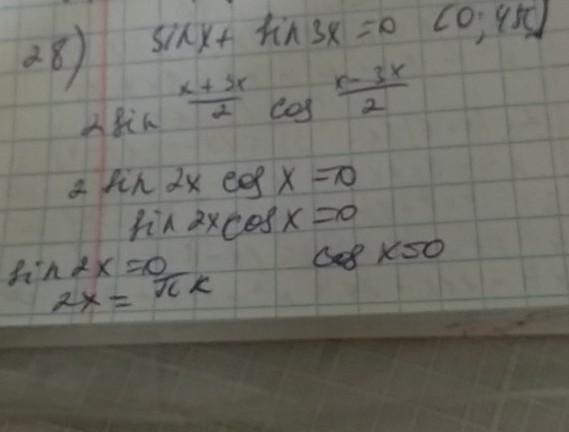 28) sinx + sin 3x = 0 (0; 4π)
2 sin \frac{x + 3x}{2} cos \frac{x - 3x}{2}
2 sin 2x cos x = 0
sin 2x cos x = 0
sin 2x = 0 cos x = 0
2x = πk